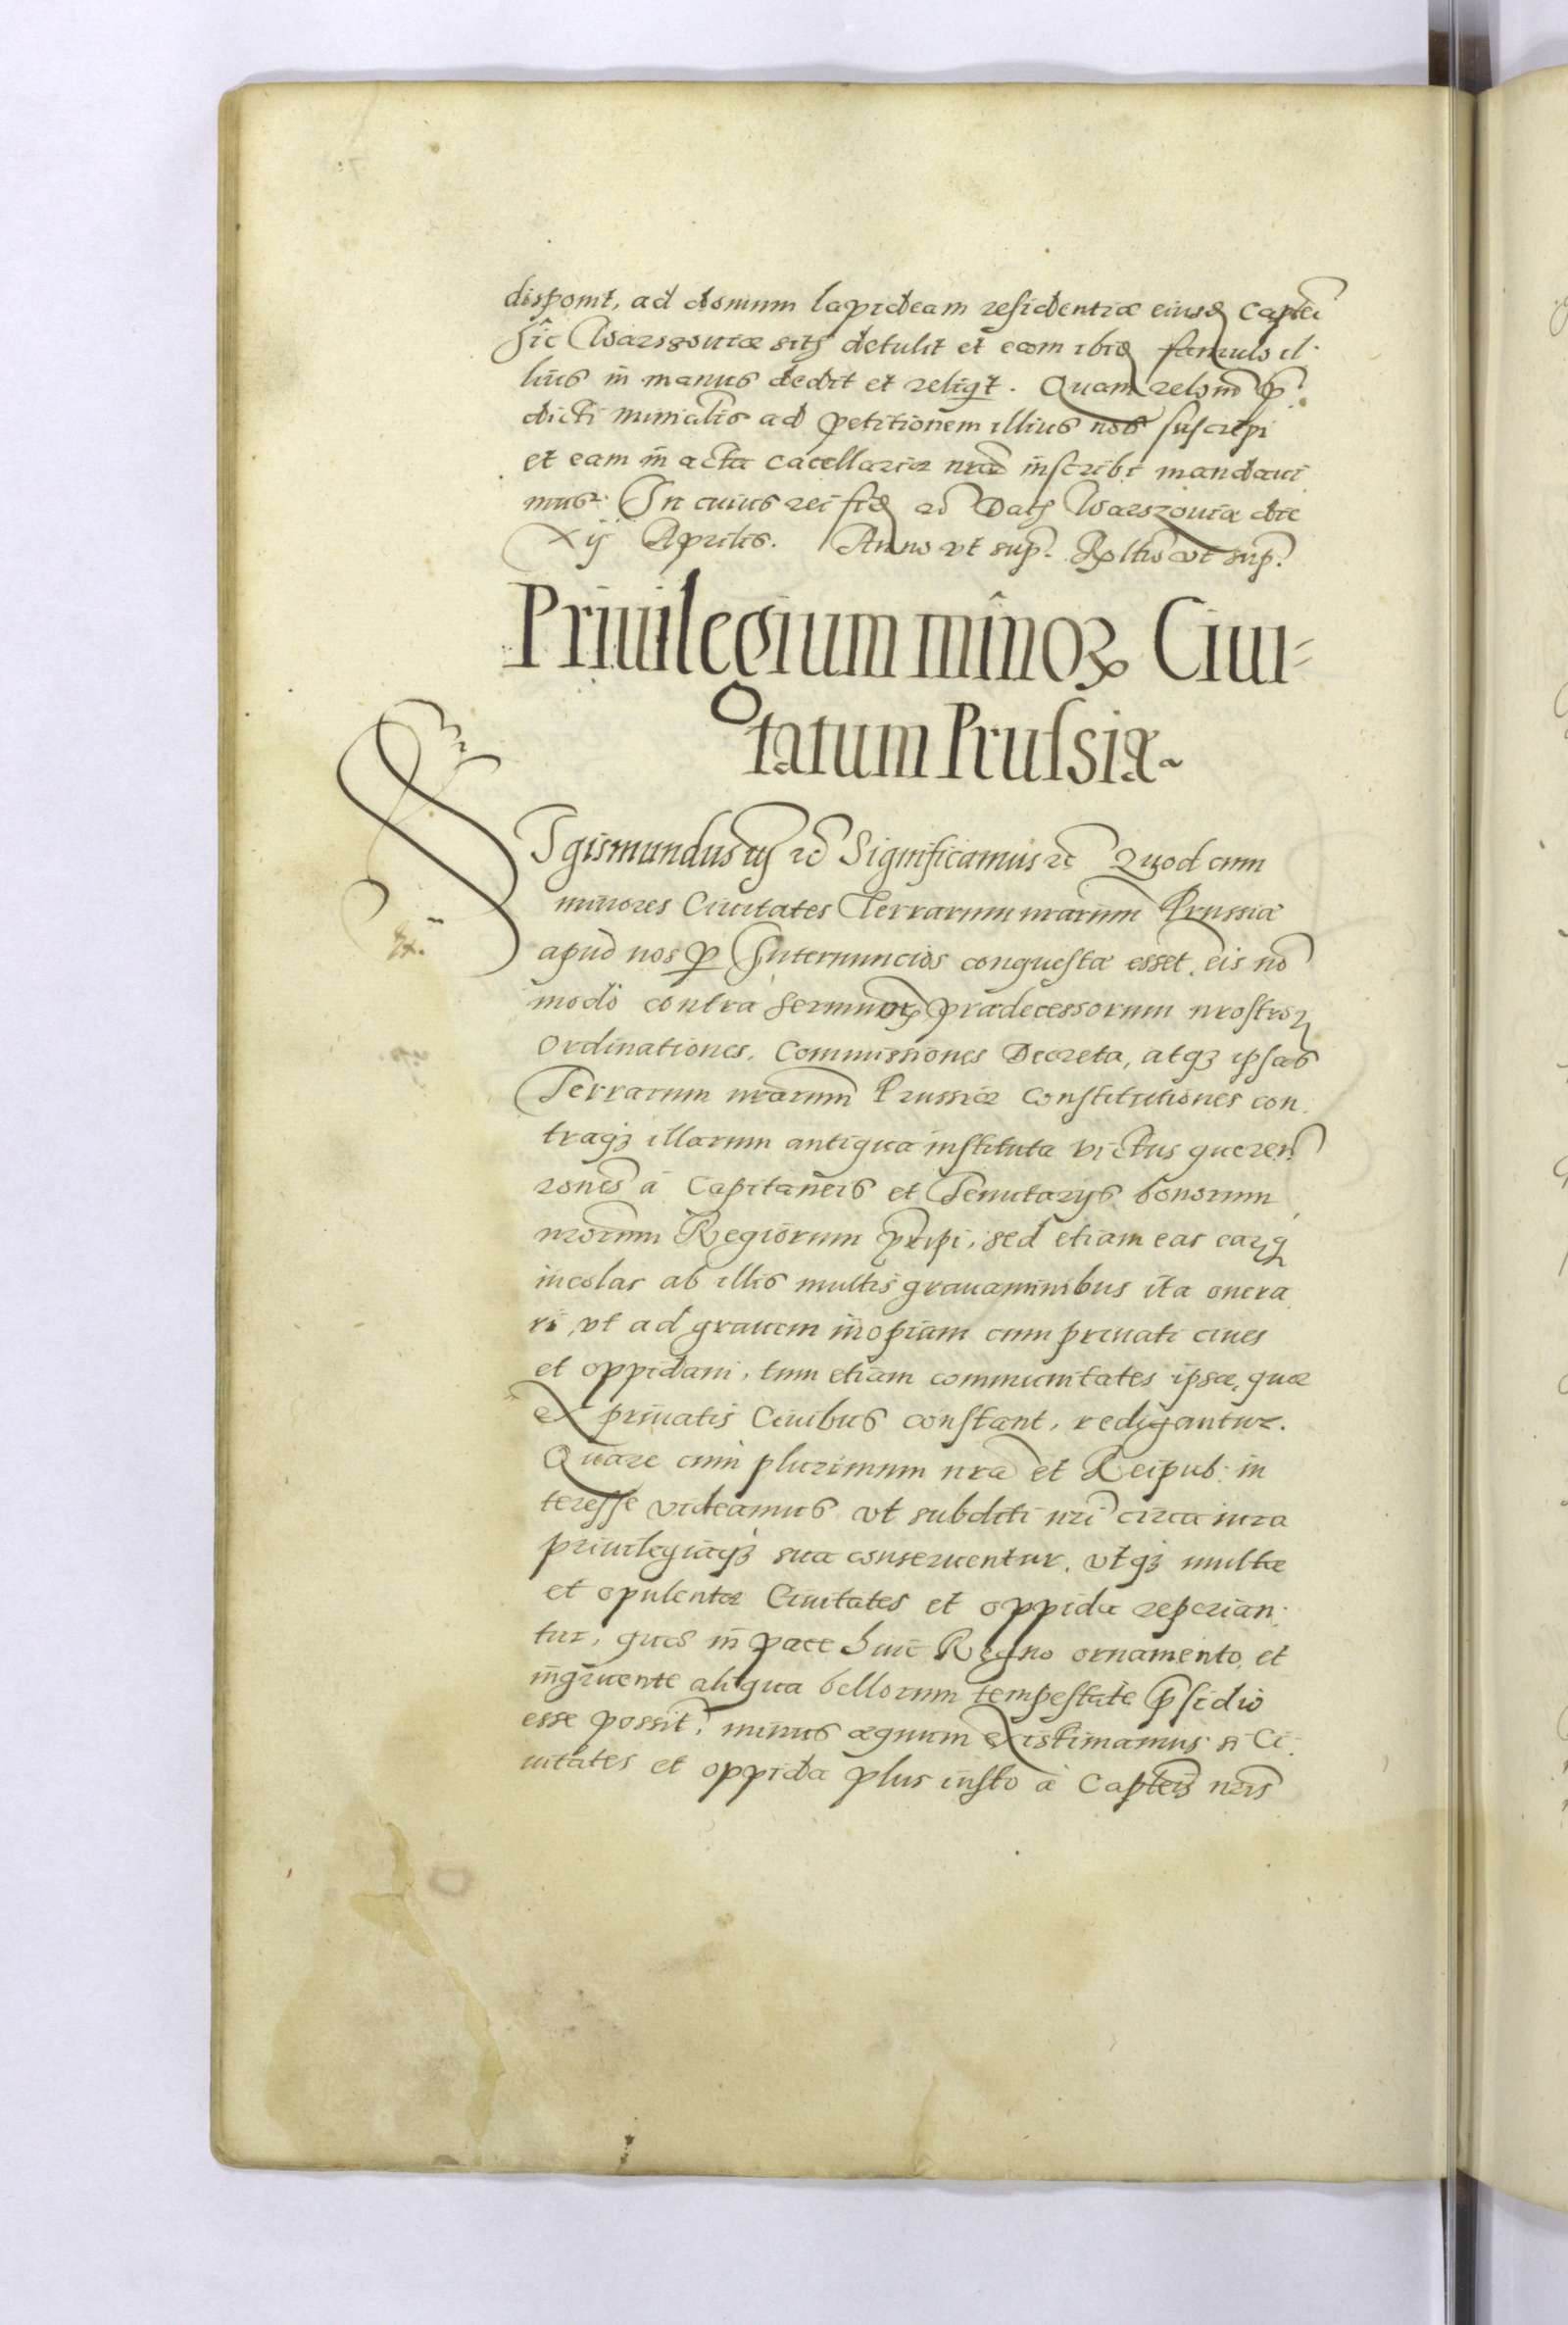 disponit, ad domum lapideam residentiæ eiusd Captei
hic Warszouiæ sitą detulit et eam ibid famulo il-
lius in manus dedit et reliqt. Quam relom p
dicti minialis ad petitionem illius nos suscepi
et eam in acta cacellariæ nræ inscribi mandaui
mus. In cuius rei fid ꝛc Datꝭ Warszouiæ die
Xij Aprilis. Anno vt sup. Rltio vt sup.
Priuilegium minoꝝ Ciui=
tatum Prussiæ~
SIgismundus iij ꝛc Significamus ꝛc Quod cum
minores Ciuitates Terrarum nrarum Prussiæ
apud nos ꝑ Internuncios conquestæ essēt, eis nō
modo contra Sermorꝝ prædecessorum nrostroꝝ
Ordinationes, Commissiones Decreta, atqꝫ ipsas
Terrarum nrarum Prussiæ Constitutiones con
traqꝫ illarum antiqua instituta victus queren
rones à Capitaneis et Tenutarijs bonorum
nrorum Regiorum pripi, sed etiam eas earꝫq
incolas ab illis multis grauaminibus ita onera
ri, vt ad grauem inopiam cum priuati ciues
et oppidani, tum etiam communitates ipsæ, quæ
ex priuatis Ciuibus constant, redigantur.
Quare cum plurimum nra et Reipub: in
teresse videamus vt subditi nri circa iura
priuilegiaqꝫ sua conseruentur, vtqꝫ multæ
et opulentæ Ciuitates et oppida reperian-
tur, quæ in pace huic Regno ornamento, et
ingruente aliqua bellorum tempestate p̄sidio
esse possit, minus æquum existimamus si Ci-
uitates et oppida plus iusto à Capteis nris